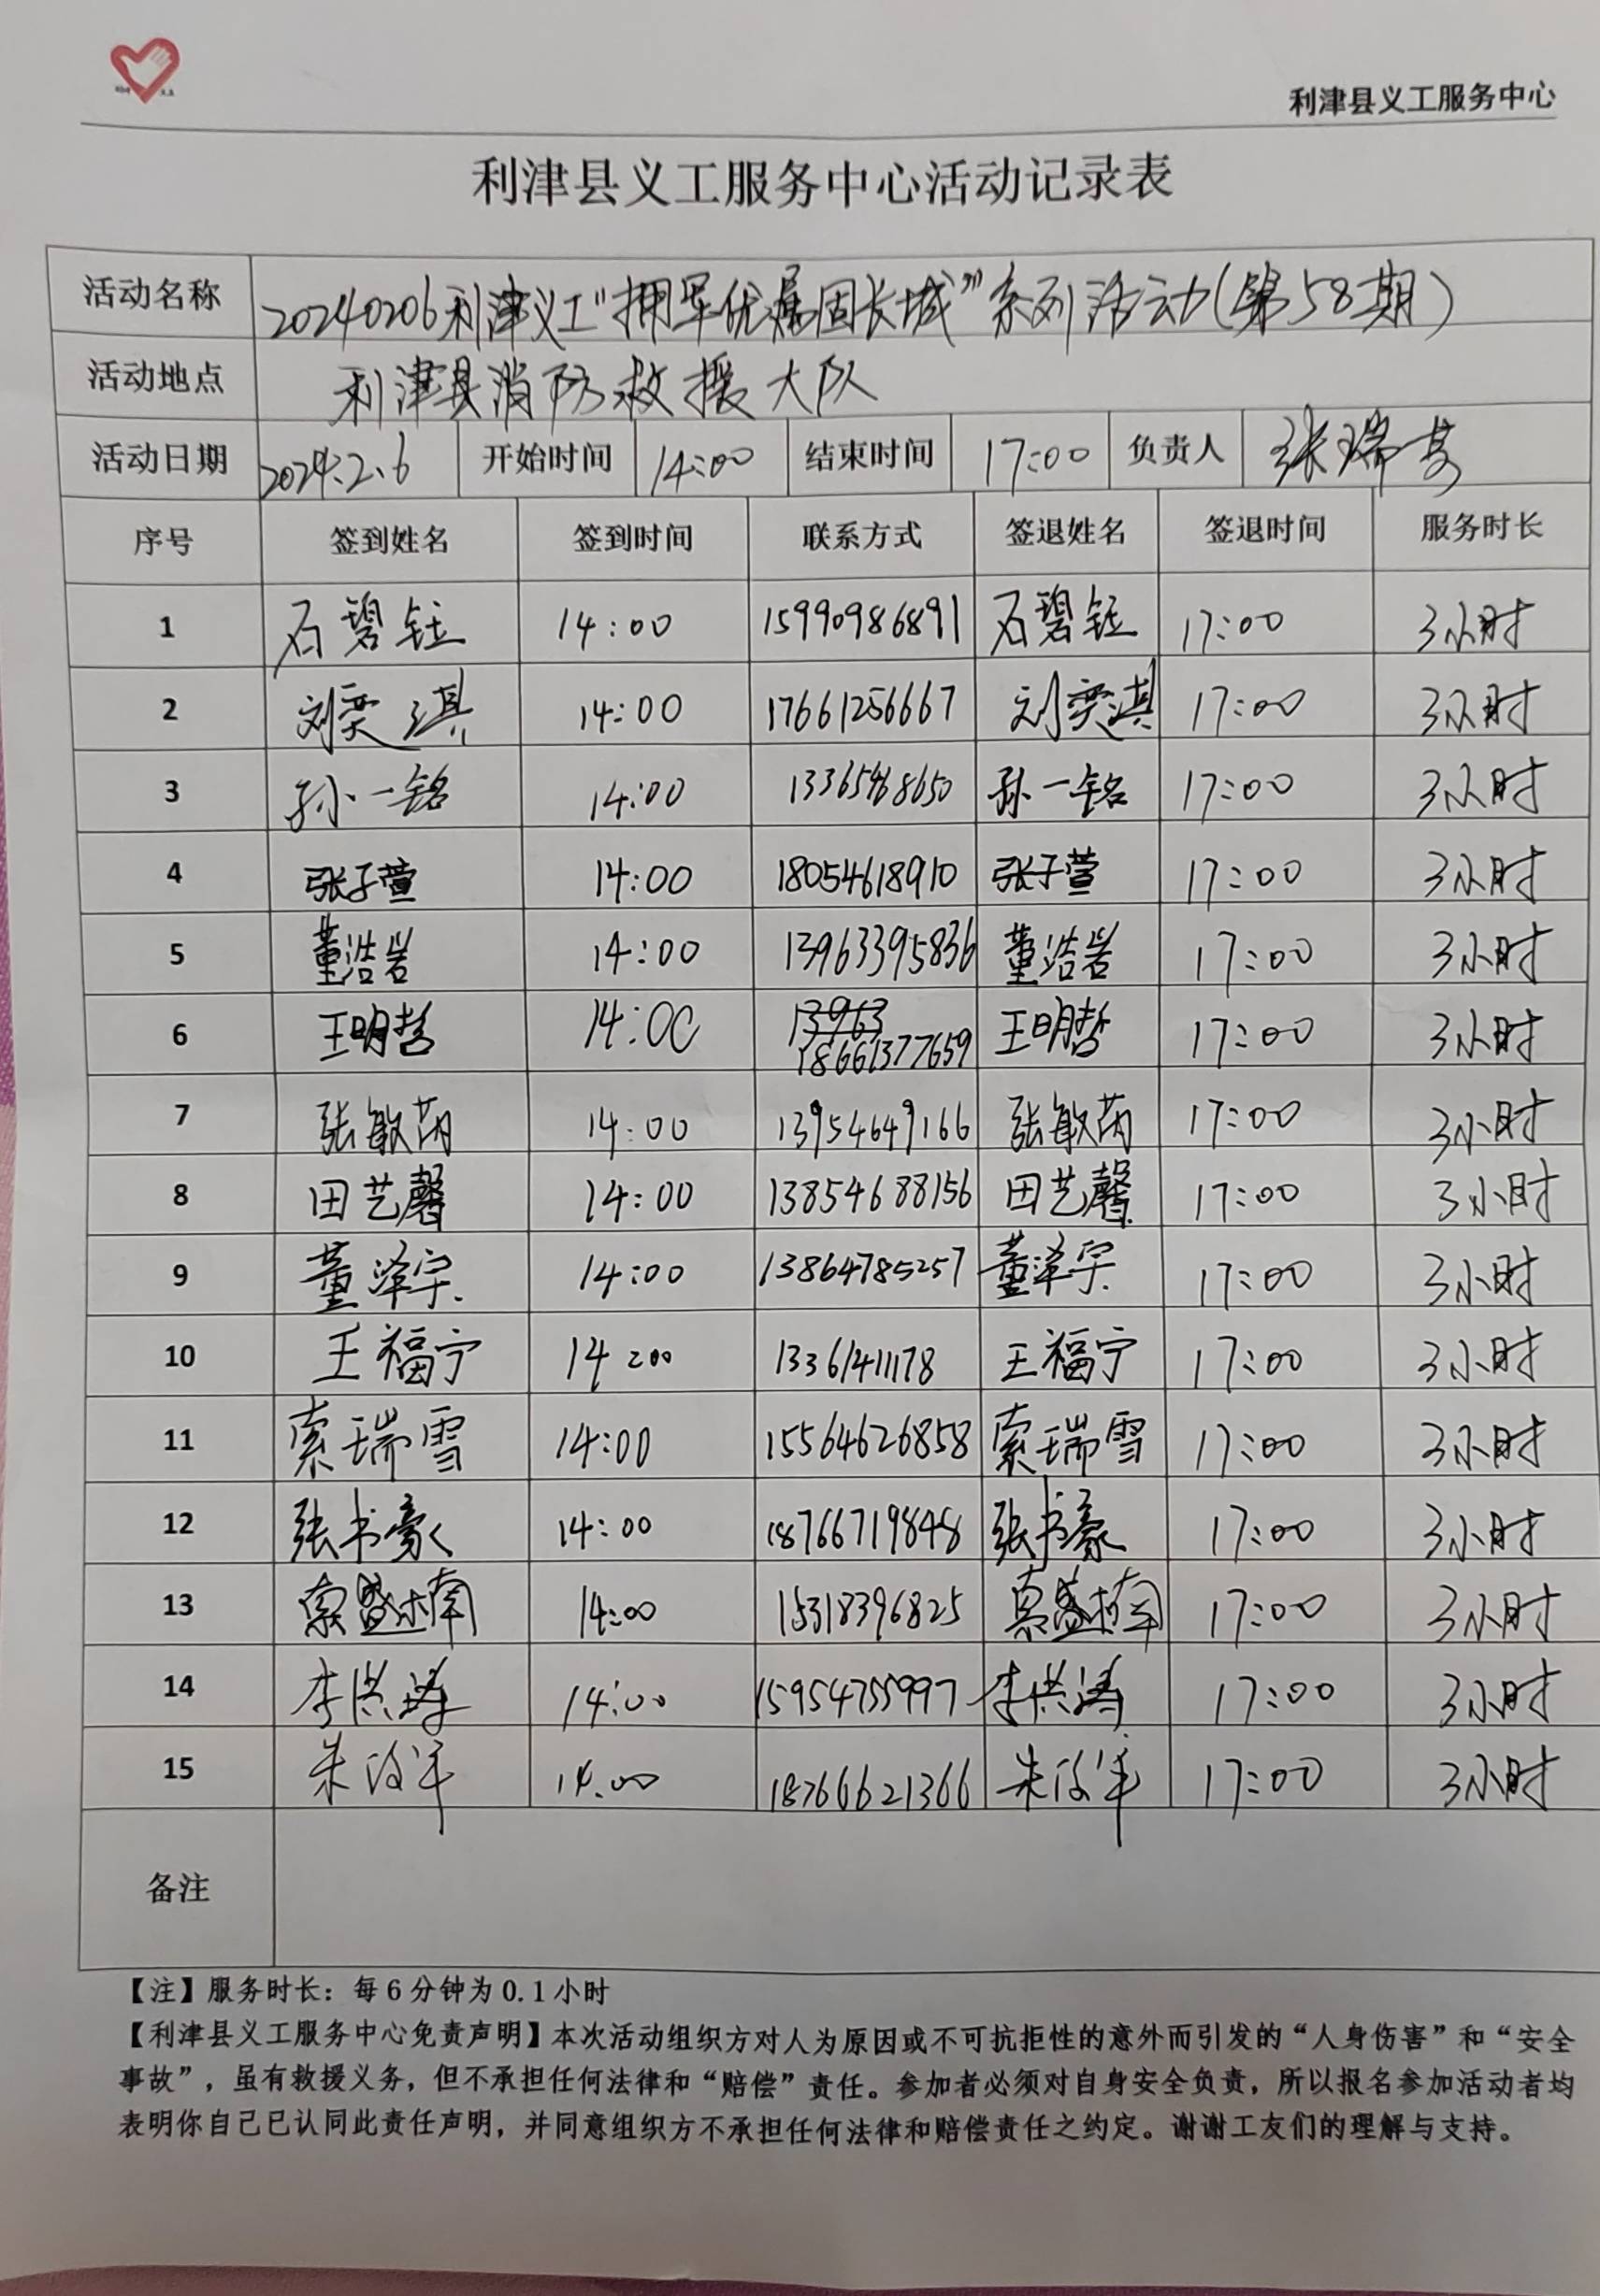 利津县义工服务中心
利津县义工服务中心活动记录表
活动名称 20240206利津义工“拥军优属固长城”系列活动(第58期)
活动地点 利津县消防救援大队
活动日期 2024.2.6 开始时间 14:00 结束时间 17:00 负责人 张瑞芳
序号 签到姓名 签到时间 联系方式 签退姓名 签退时间 服务时长
1 石碧钰 14:00 15990986891 石碧钰 17:00 3小时
2 刘奕淇 14:00 17661256667 刘奕淇 17:00 3小时
3 孙一铭 14:00 孙一铭 17:00 3小时
4 张子萱 14:00 18054618910 张子萱 17:00 3小时
5 董浩岩 14:00 13963395836 董浩岩 17:00 3小时
6 王明哲 14:00 13963 18661377659 王明哲 17:00 3小时
7 张敏芮 14:00 13954649166 张敏芮 17:00 3小时
8 田艺馨 14:00 13854688156 田艺馨 17:00 3小时
9 董泽宇 14:00 13864785257 董泽宇 17:00 3小时
10 王福宁 14:00 13361411178 王福宁 17:00 3小时
11 索瑞雪 14:00 15564626858 索瑞雪 17:00 3小时
12 张书豪 14:00 18766719848 张书豪 17:00 3小时
13 索盛楠 14:00 15318396825 索盛楠 17:00 3小时
14 李洪涛 14:00 15954755997 李洪涛 17:00 3小时
15 14:00 18766621366 17:00 3小时
备注
【注】服务时长：每6分钟为0.1小时
【利津县义工服务中心免责声明】本次活动组织方对人为原因或不可抗拒性的意外而引发的“人身伤害”和“安全
事故”，虽有救援义务，但不承担任何法律和“赔偿”责任。参加者必须对自身安全负责，所以报名参加活动者均
表明你自己已认同此责任声明，并同意组织方不承担任何法律和赔偿责任之约定。谢谢工友们的理解与支持。